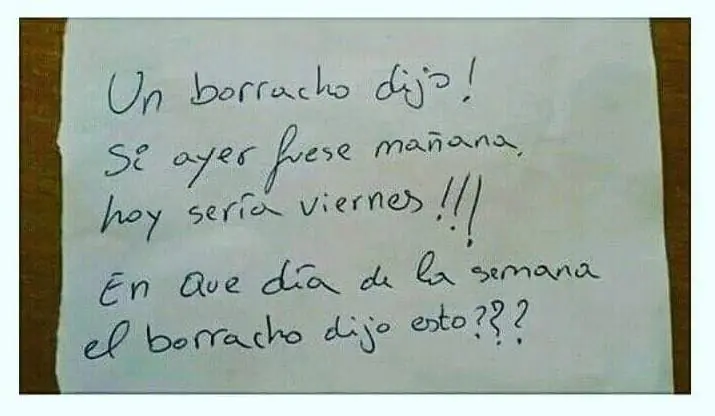 Un borracho dijo!
Si ayer fuese mañana,
hoy sería viernes!!!
En que día de la semana
el borracho dijo esto???